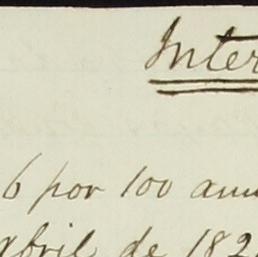 Inter
6 por 100 ann
abril de 182